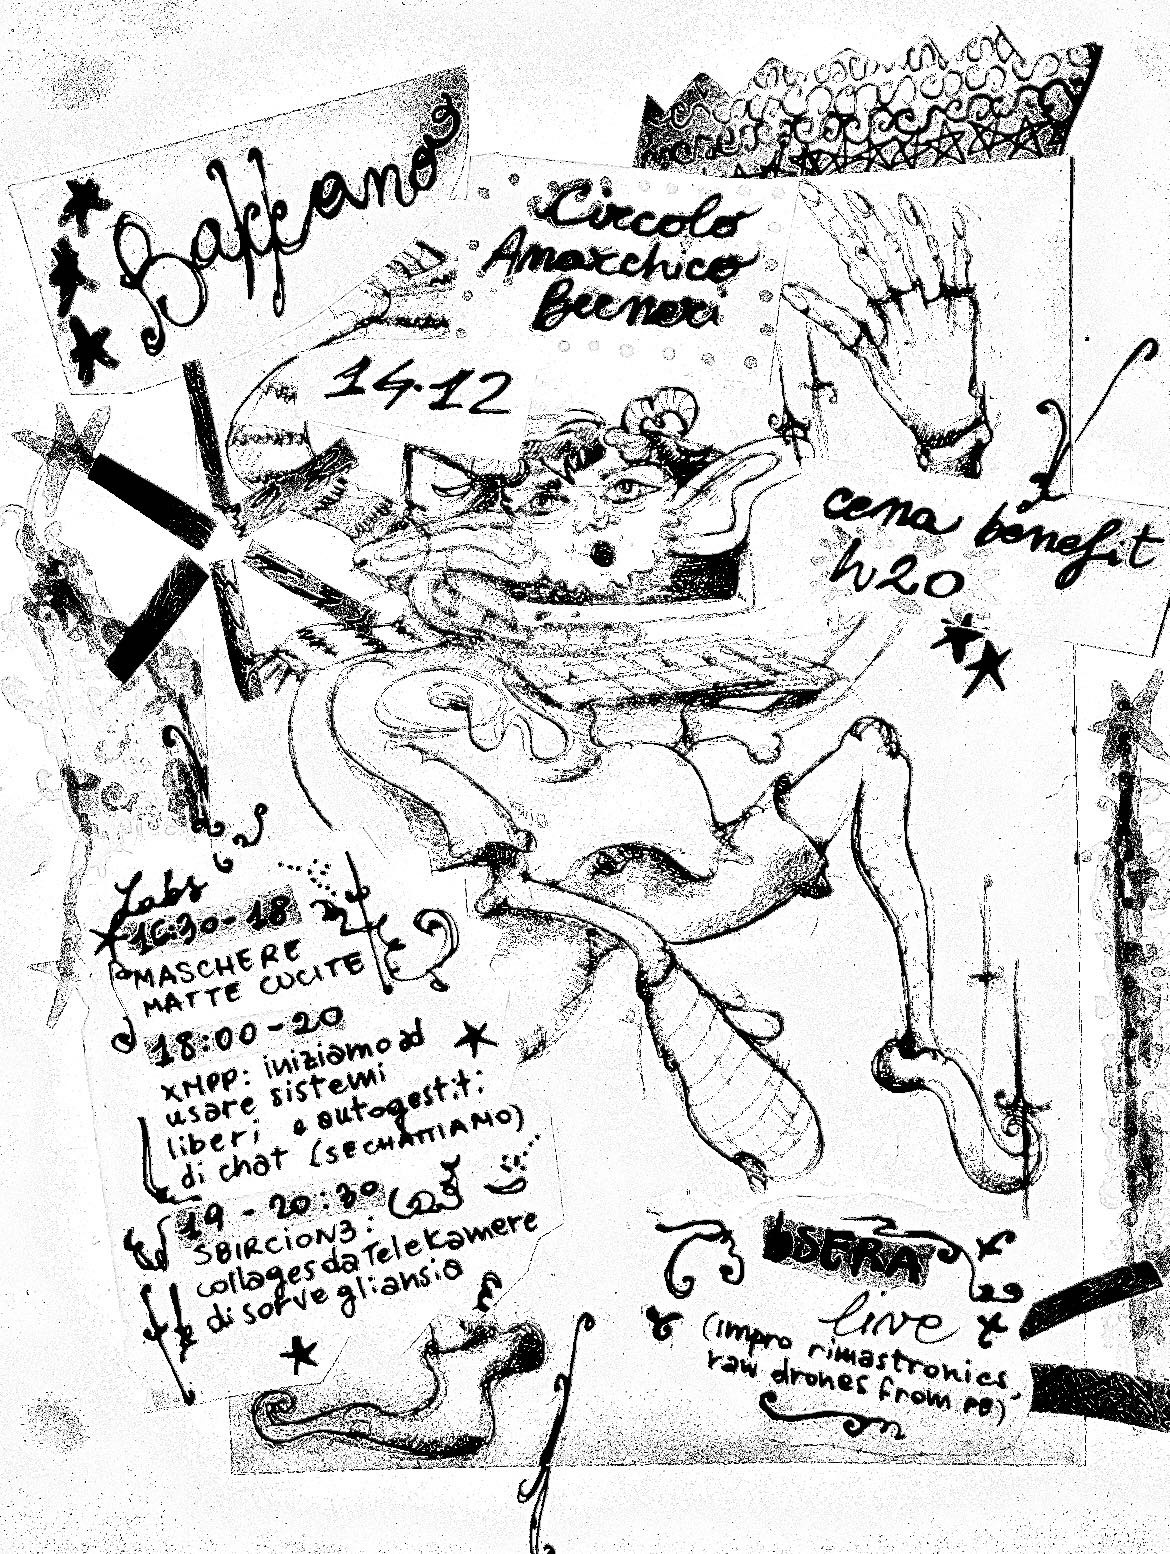 Baffano
Circolo
Anarchico
Berneri
14.12
cena benefit
h20
Labs
16:30-18
MASCHERE
MATTE CUCITE
18:00-20
XMPP: iniziamo ad
usare sistemi
liberi e autogestiti
di chat (SECHATTIAMO)
19 - 20:30
SBIRCION3:
collages da Telekamere
di sorvegliansia
live
(impro rimastronics,
raw drones from PB)